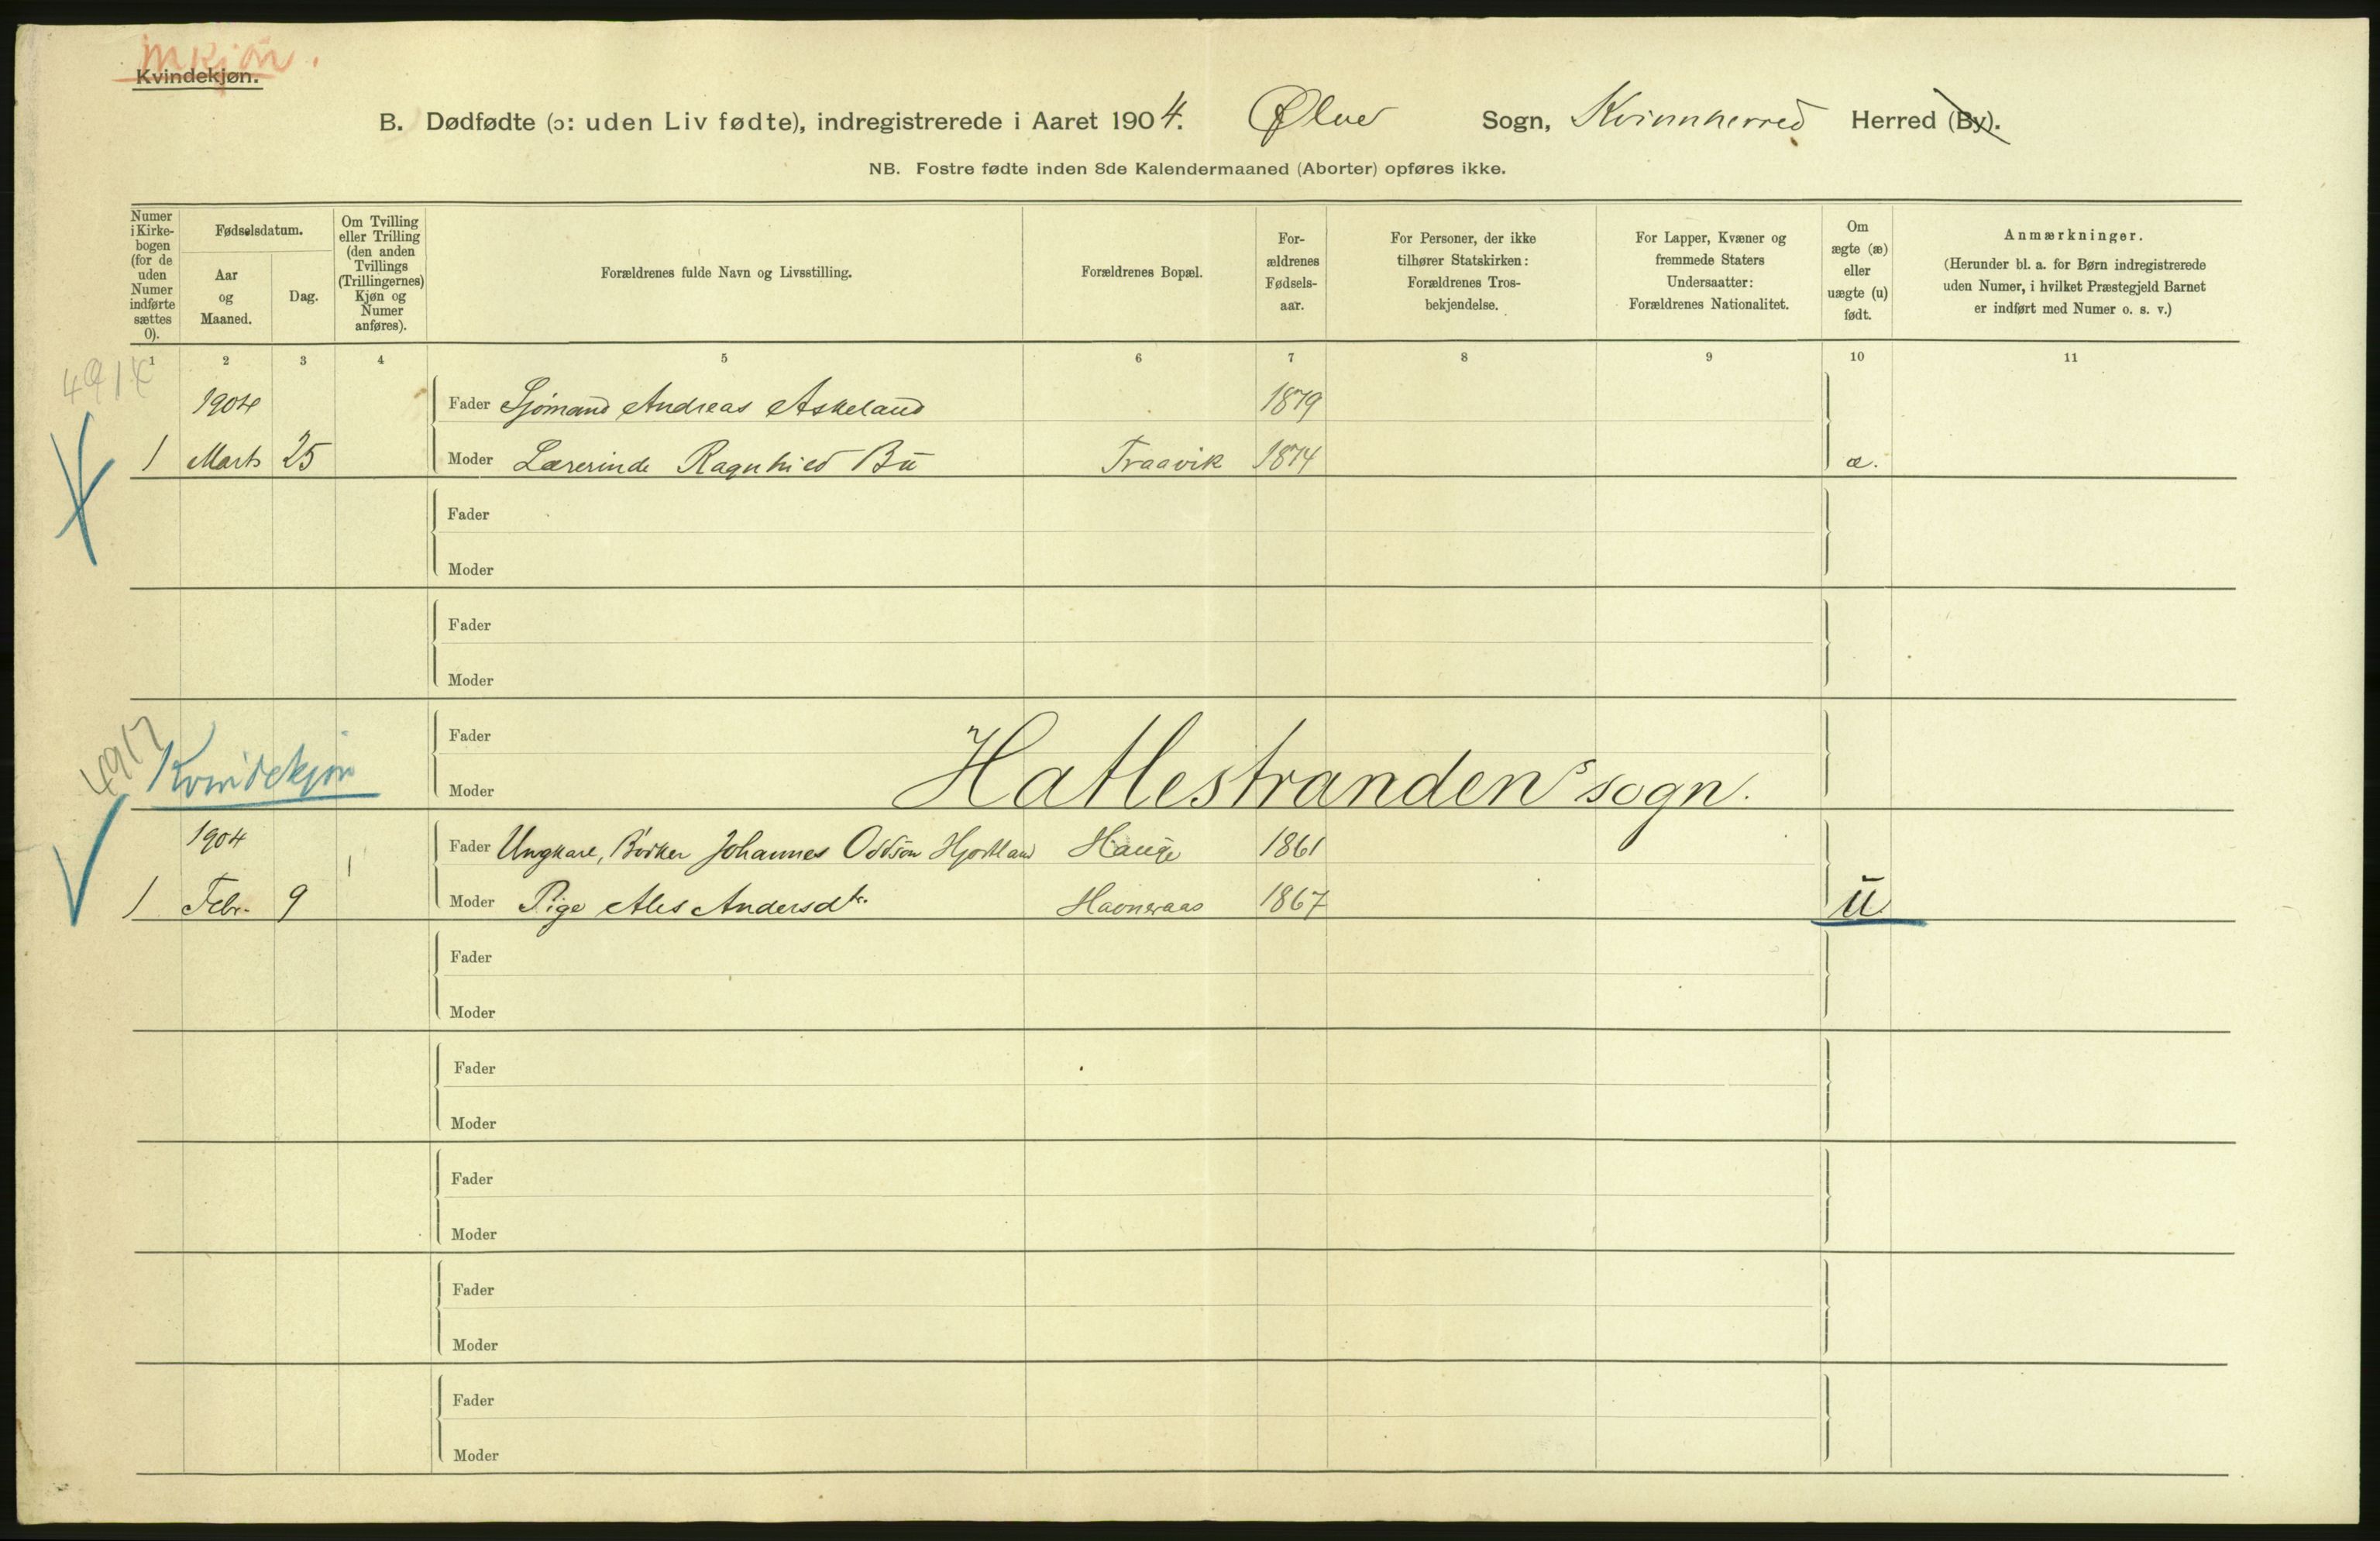 Mkjøn.
Kvindekjøn.
B. Dødfødte (ɔ: uden Liv fødte), indregistrerede i Aaret 1904. Ølve Sogn, Kvinnherred Herred (By).
NB. Fostre fødte inden 8de Kalendermaaned (Aborter) opføres ikke.
Numer i Kirke-bogen (for de uden Numer indførte sættes 0).
Fødselsdatum.
Aar og Maaned.
Dag.
Om Tvilling eller Trilling (den anden Tvillings (Trillingernes) Kjøn og Numer anføres).
Forældrenes fulde Navn og Livsstilling.
Forældrenes Bopæl.
For-ældrenes Fødsels-aar.
For Personer, der ikke tilhører Statskirken: Forældrenes Tros-bekjendelse.
For Lapper, Kvæner og fremmede Staters Undersaatter: Forældrenes Nationalitet.
Om ægte (æ) eller uægte (u) født.
Anmærkninger.
(Herunder bl. a. for Børn indregistrerede uden Numer, i hvilket Præstegjeld Barnet er indført med Numer o. s. v.)
1 2 3 4 5 6 7 8 9 10 11
4914
1904 Fader Sjømand Andreas Askeland 1879
1 Marts 25 Moder Lærerinde Ragnhild Bu Traavik 1874 æ.
Fader
Moder
Fader
Moder
4917
Fader
Kvindekjøn Moder Hatlestrandens sogn.
1904 Fader Ungkarl, Bødker Johannes Oddsøn Hjortland Hauge 1861
1 Febr. 9 Moder Pige Ales Andersdtr. Havneraas 1867 u
Fader
Moder
Fader
Moder
Fader
Moder
Fader
Moder
Fader
Moder